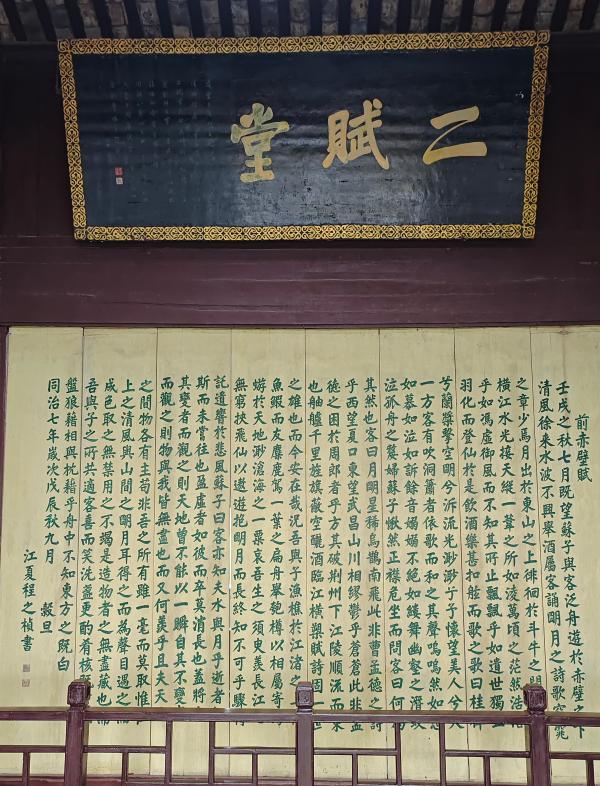 二賦堂
前赤壁賦
壬戌之秋七月既望蘇子與客泛舟遊於赤壁之下
清風徐來水波不興舉酒屬客誦明月之詩歌窈窕
之章少焉月出於東山之上徘徊於斗牛之間
橫江水光接天縱一葦之所如淩萬頃之茫然浩
乎如馮虛御風而不知其所止飄飄乎如遺世獨立
羽化而登仙於是飲酒樂甚扣舷而歌之歌曰桂棹
兮蘭槳擊空明兮泝流光渺渺兮予懷望美人兮天
一方客有吹洞簫者依歌而和之其聲嗚嗚然如怨
如慕如泣如訴餘音嫋嫋不絕如縷舞幽壑之潛蛟
泣孤舟之嫠婦蘇子愀然正襟危坐而問客曰何為
其然也客曰月明星稀烏鵲南飛此非曹孟德之詩
乎西望夏口東望武昌山川相繆鬱乎蒼蒼此非孟
德之困於周郎者乎方其破荊州下江陵順流而東
也舳艫千里旌旗蔽空釃酒臨江橫槊賦詩固一
之雄也而今安在哉況吾與子漁樵於江渚之上
魚鰕而友麋鹿駕一葉之扁舟舉匏樽以相屬寄
蝣於天地渺滄海之一粟哀吾生之須臾羨長江
無窮挾飛仙以遨遊抱明月而長終知不可乎驟得
託遺響於悲風蘇子曰客亦知夫水與月乎逝者
斯而未嘗往也盈虛者如彼而卒莫消長也蓋將
其變者而觀之則天地曾不能以一瞬自其不變
而觀之則物與我皆無盡也而又何羨乎且夫天
之間物各有主苟非吾之所有雖一毫而莫取惟江
上之清風與山間之明月耳得之而為聲目遇之而
成色取之無禁用之不竭是造物者之無盡藏也而
吾與子之所共適客喜而笑洗盞更酌肴核既
盤狼藉相與枕藉乎舟中不知東方之既白
同治七年歲次戊辰秋九月 穀旦
江夏程之楨書